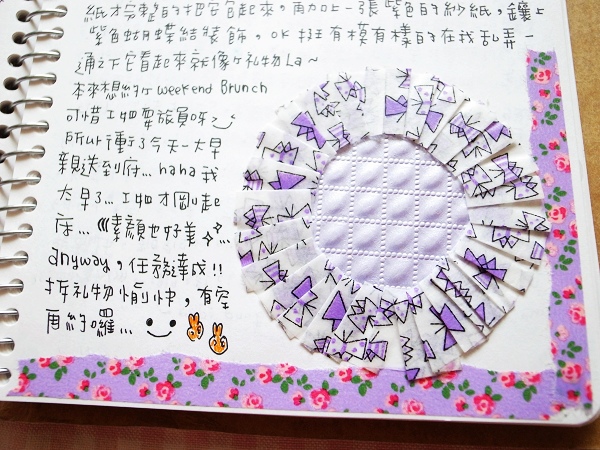 紙才完整的把它包起來，再加上一張紫色的紗紙，鑲上
紫色蝴蝶結裝飾，OK挺有模有樣的在我亂弄一
通之下它看起來就像個禮物La~
本來想約個weekend Brunch
可惜工女田要旅員呀~
所以重了今天一大早
親送到府...haha我
太早了...工女田才剛起
床...素顏也好美...
anyway，任務達成!!
拆禮物愉快，有空
再約囉...